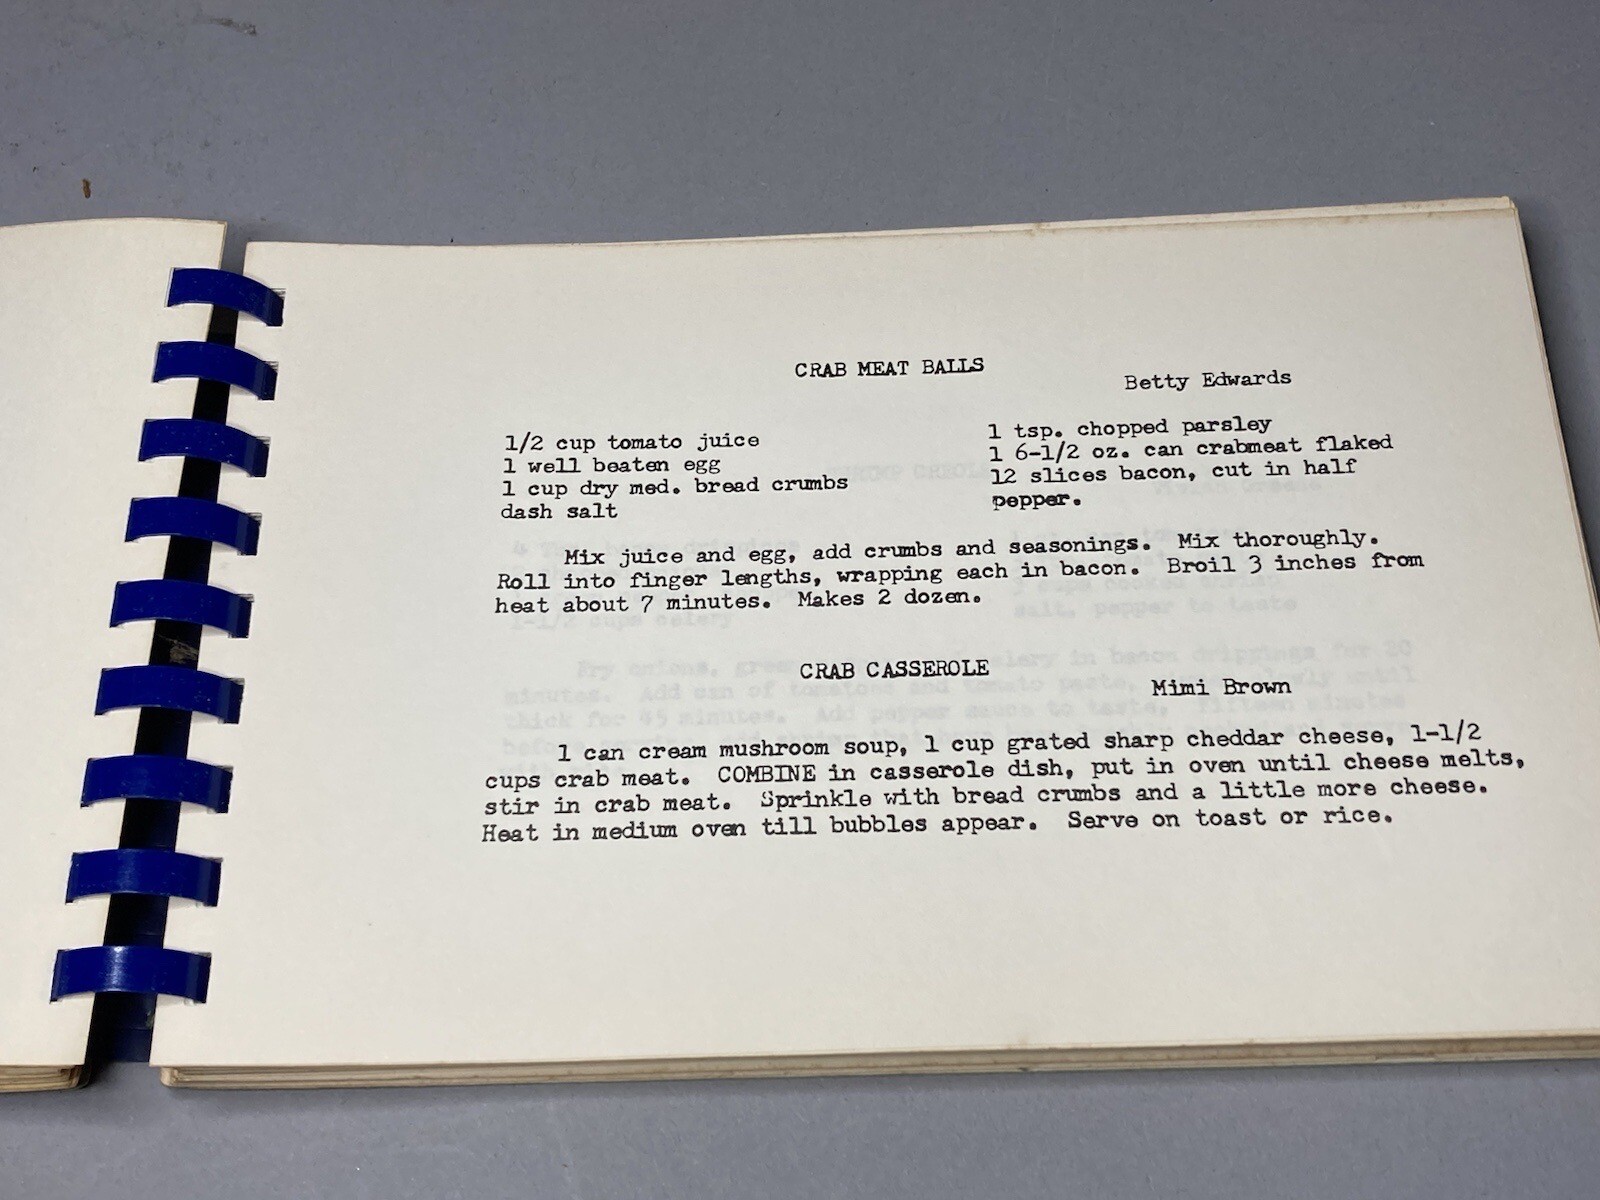 CRAB MEAT BALLS
Betty Edwards
1/2 cup tomato juice
1 well beaten egg
1 cup dry med. bread crumbs
dash salt
1 tsp. chopped parsley
1 6-1/2 oz. can crabmeat flaked
12 slices bacon, cut in half
pepper.
Mix juice and egg, add crumbs and seasonings. Mix thoroughly.
Roll into finger lengths, wrapping each in bacon. Broil 3 inches from
heat about 7 minutes. Makes 2 dozen.
CRAB CASSEROLE
Mimi Brown
1 can cream mushroom soup, 1 cup grated sharp cheddar cheese, 1-1/2
cups crab meat. COMBINE in casserole dish, put in oven until cheese melts,
stir in crab meat. Sprinkle with bread crumbs and a little more cheese.
Heat in medium oven till bubbles appear. Serve on toast or rice.